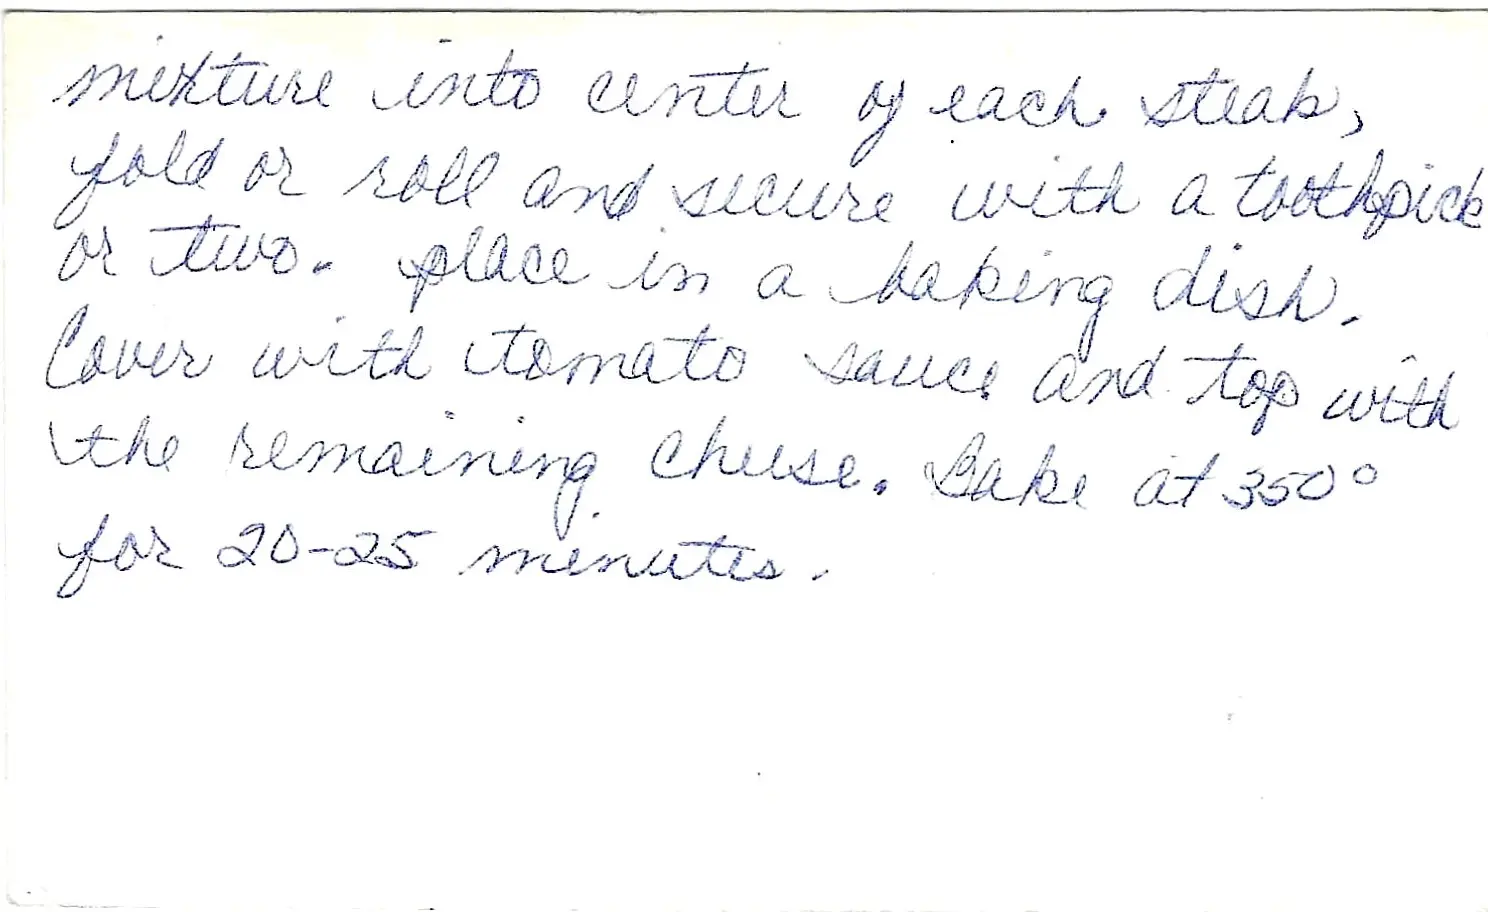 mixture into center of each steak,
fold or roll and secure with a toothpick
or two. place in a baking dish.
Cover with tomato sauce and top with
the remaining cheese. Bake at 350°
for 20-25 minutes.